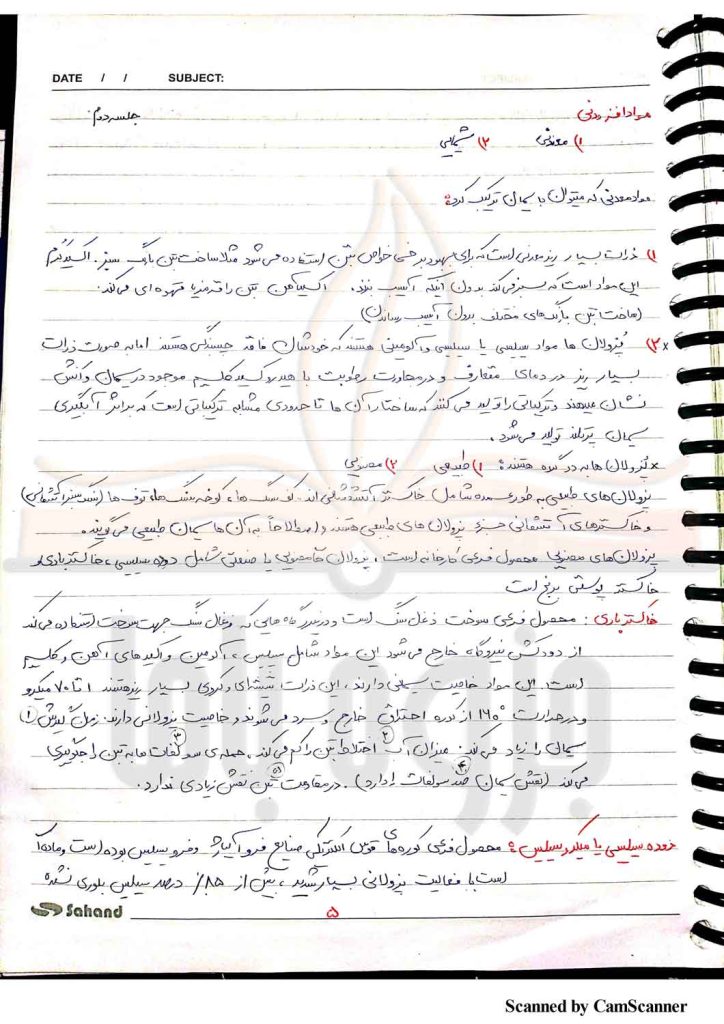 DATE / / SUBJECT:
جلسه دوم
مواد افزودنی
۱) معدنی ۲) شیمیایی
مواد معدنی که میتوان با سیمان ترکیب کرد:
۱) ذرات بسیار ریز معدنی است که برای بهبود برخی خواص بتن استفاده می شود مثلا ساخت بتن با رنگ سبز. اکسید کرم
این مواد است که سبز می کند بدون آنکه آسیب بزند. اکسید آهن بتن را قرمز یا قهوه ای می کند.
(ساخت بتن با رنگ های مختلف بدون آسیب رساندن)
x ۲) پوزولان ها مواد سیلیسی یا سیلیسی و آلومینی هستند که خودشان فاقد چسبندگی هستند اما به صورت ذرات
بسیار ریز در دمای متعارف و در مجاورت رطوبت با هیدروکسید کلسیم موجود در سیمان واکنش
نشان میدهند و ترکیباتی را تولید می کنند که ساختار آن ها تا حدودی مشابه ترکیباتی است که بر اثر آبگیری
سیمان پرتلند تولید می شود.
x پوزولان ها به دو گروه هستند: ۱) طبیعی ۲) مصنوعی
پزولان های طبیعی به طور عمده شامل خاکستر آتشفشانی اند. کف سنگ ها، توف ها
و خاکسترهای آتشفشانی جزء پزولان های طبیعی هستند و اصطلاحاً به آن ها سیمان طبیعی می گویند.
پزولان های مصنوعی محصول فرعی کارخانه است، پزولان مصنوعی یا صنعتی شامل دوده سیلیسی، خاکستر بادی و
خاکستر پوستۀ برنج است
خاکستر بادی: محصول فرعی سوخت ذغال سنگ است و در نیروگاه هایی که ذغال سنگ جهت سوخت استفاده می کند
از دودکش نیروگاه خارج می شود این مواد شامل سیلیس، آلومین و اکسیدهای آهن و کلسیم
است. این مواد خاصیت سیمانی دارند، این ذرات شیشه ای و کروی بسیار ریز هستند ۱ تا ۷۰ میکرو
و در حرارت ۱۶۰° از کوره احتراق خارج و سرد می شوند و خاصیت پزولانی دارند. زمان گیرش ①
سیمان را زیاد می کند. میزان آب ② اختلاط بتن را کم می کند، حمله ی سولفات ها به بتن ③ را جلوگیری
می کند (نقش سیمان ضد سولفات ④ را دارد). در مقاومت بتن ⑤ نقش زیادی ندارد.
دوده سیلیسی یا میکروسیلیس: محصول فرعی کوره های قوس الکتریکی صنایع فروآلیاژ و فروسیلیس بوده است و ماده ای
است با فعالیت پزولانی بسیار شدید، بیش از ٪۸۵ درصد سیلیس بلوری نشده
Sahand
۵
جزوه باما
Scanned by CamScanner